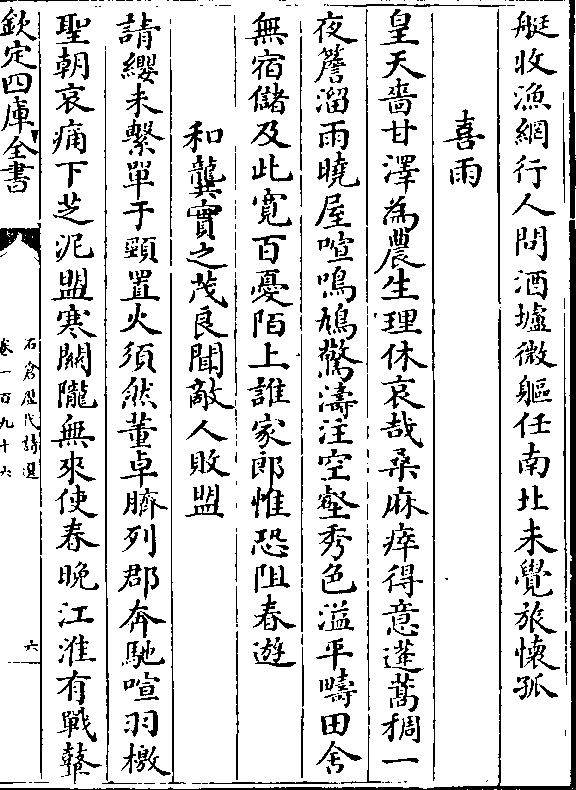 艇收漁網行人問酒壚微軀任南北未覺旅懷孤
喜雨
皇天嗇甘澤為農生理休哀哉桑麻瘁得意蓬蒿稠一
夜簷溜雨曉屋喧鳴鳩驚濤注空壑秀色溢平疇田舍
無宿儲及此寛百憂陌上誰家郎惟恐阻春遊
和龔實之茂良聞敵人敗盟
請纓未繫單于頸置火須然董卓臍列郡奔馳喧羽檄
聖朝哀痛下芝泥盟寒關隴無來使春晚江淮有戰鼙
欽定四庫全書
石倉歷代詩選
卷一百九十六
六